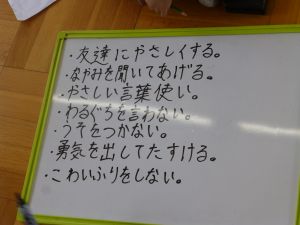 ・友達にやさしくする。
・なやみを聞いてあげる。
・やさしい言葉使い。
・わるぐちを言わない。
・うそをつかない。
・勇気を出してたすける。
・こわいふりをしない。